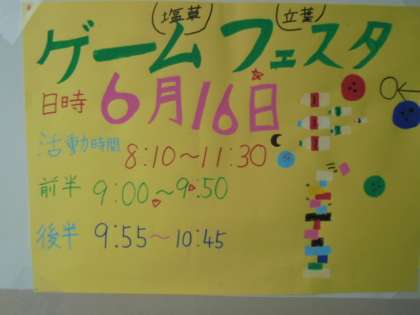 塩草 立葉
ゲームフェスタ
日時 6月16日
活動時間 8:10〜11:30
前半 9:00〜9:50
後半 9:55〜10:45